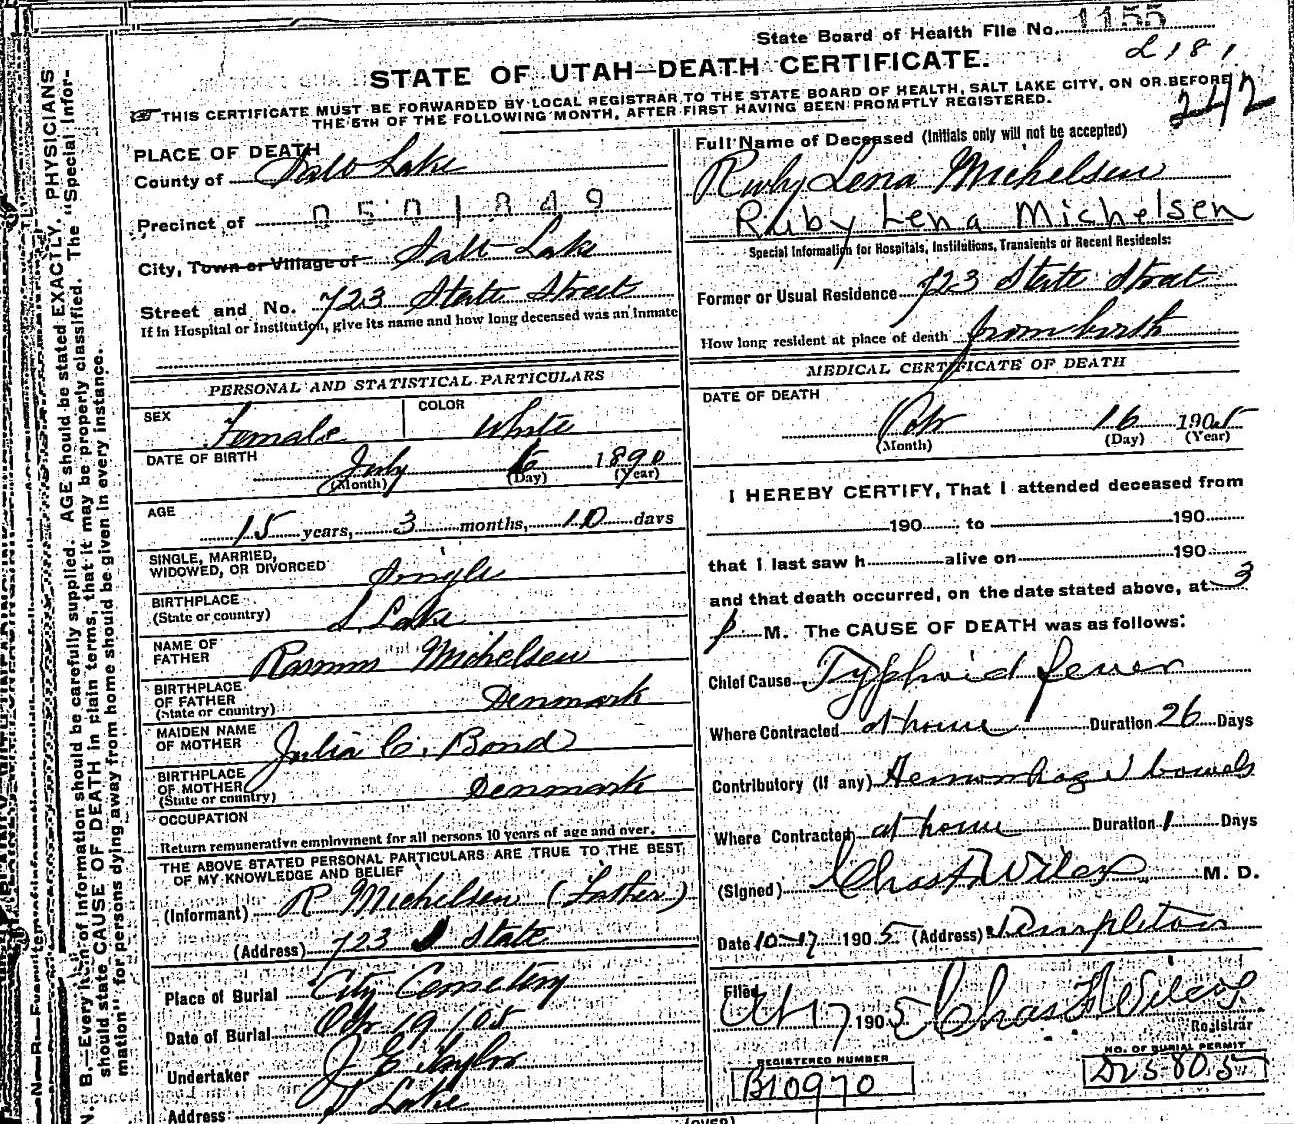 State Board of Health File No. 1155
2181
STATE OF UTAH—DEATH CERTIFICATE.
242
THIS CERTIFICATE MUST BE FORWARDED BY LOCAL REGISTRAR TO THE STATE BOARD OF HEALTH, SALT LAKE CITY, ON OR BEFORE
THE 5TH OF THE FOLLOWING MONTH, AFTER FIRST HAVING BEEN PROMPTLY REGISTERED.
PLACE OF DEATH
County of Salt Lake
Precinct of 0501849
City, Town or Village of Salt Lake
Street and No. 723 State Street
If in Hospital or Institution, give its name and how long deceased was an Inmate
PERSONAL AND STATISTICAL PARTICULARS
SEX Female COLOR White
DATE OF BIRTH July 6 1890
(Month) (Day) (Year)
AGE
15 years, 3 months, 10 days
SINGLE, MARRIED,
WIDOWED, OR DIVORCED Single
BIRTHPLACE
(State or country) S. Lake
NAME OF
FATHER Rasmus Michelsen
BIRTHPLACE
OF FATHER
(State or country) Denmark
MAIDEN NAME
OF MOTHER Julia C. Bond
BIRTHPLACE
OF MOTHER
(State or country) Denmark
OCCUPATION
Return remunerative employment for all persons 10 years of age and over.
THE ABOVE STATED PERSONAL PARTICULARS ARE TRUE TO THE BEST
OF MY KNOWLEDGE AND BELIEF
(Informant) R Michelsen (Father)
(Address) 723 S State
Place of Burial City Cemetery
Date of Burial Oct 19/05
Undertaker J E Taylor
Address S Lake
Full Name of Deceased (Initials only will not be accepted)
Ruby Lena Michelsen
Ruby Lena Michelsen
Special Information for Hospitals, Institutions, Transients or Recent Residents:
Former or Usual Residence 723 State Street
How long resident at place of death from birth
MEDICAL CERTIFICATE OF DEATH
DATE OF DEATH
Oct 16 1905
(Month) (Day) (Year)
I HEREBY CERTIFY, That I attended deceased from
190 to 190
that I last saw h alive on 190
and that death occurred, on the date stated above, at 3
p M. The CAUSE OF DEATH was as follows:
Chief Cause Typhoid fever
Where Contracted at home Duration 26 Days
Contributory (if any) Hemorrhage bowels
Where Contracted at home Duration 1 Days
(Signed) Chas F Wilcox M. D.
Date 10-17 1905 (Address) Templeton
Filed Oct 17 1905 Chas F Wilcox
Registrar
REGISTERED NUMBER
B10970
NO. OF BURIAL PERMIT
(OVER)
N. B.—Every item of information should be carefully supplied. AGE should be stated EXACTLY. PHYSICIANS
should state CAUSE OF DEATH in plain terms, that it may be properly classified. The "Special Infor-
mation" for persons dying away from home should be given in every instance.